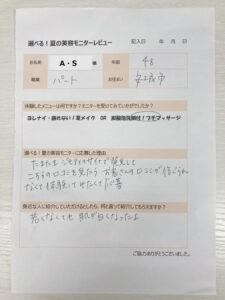 選べる!夏の美容モニターレビュー
記入日 年 月 日
お名前 A・S 様 年齢 48
職業 パート お住まい 安城市
体験したメニューは何ですか?モニターを受けてみていかがでしたか?
ヨレナイ・崩れない!夏メイク OR 炭酸泡洗顔付!プチマッサージ
選べる!夏の美容モニターに応募した理由
たまたま で発見して
こちらの口コミを見たら お客さんの口コミが信じられ
なくて体験してみたくて応募
身近な人に紹介していただけるとしたら、何と言って紹介してもらえますか?
若くなくても 肌が白くなったよ
ご協力ありがとうございました。